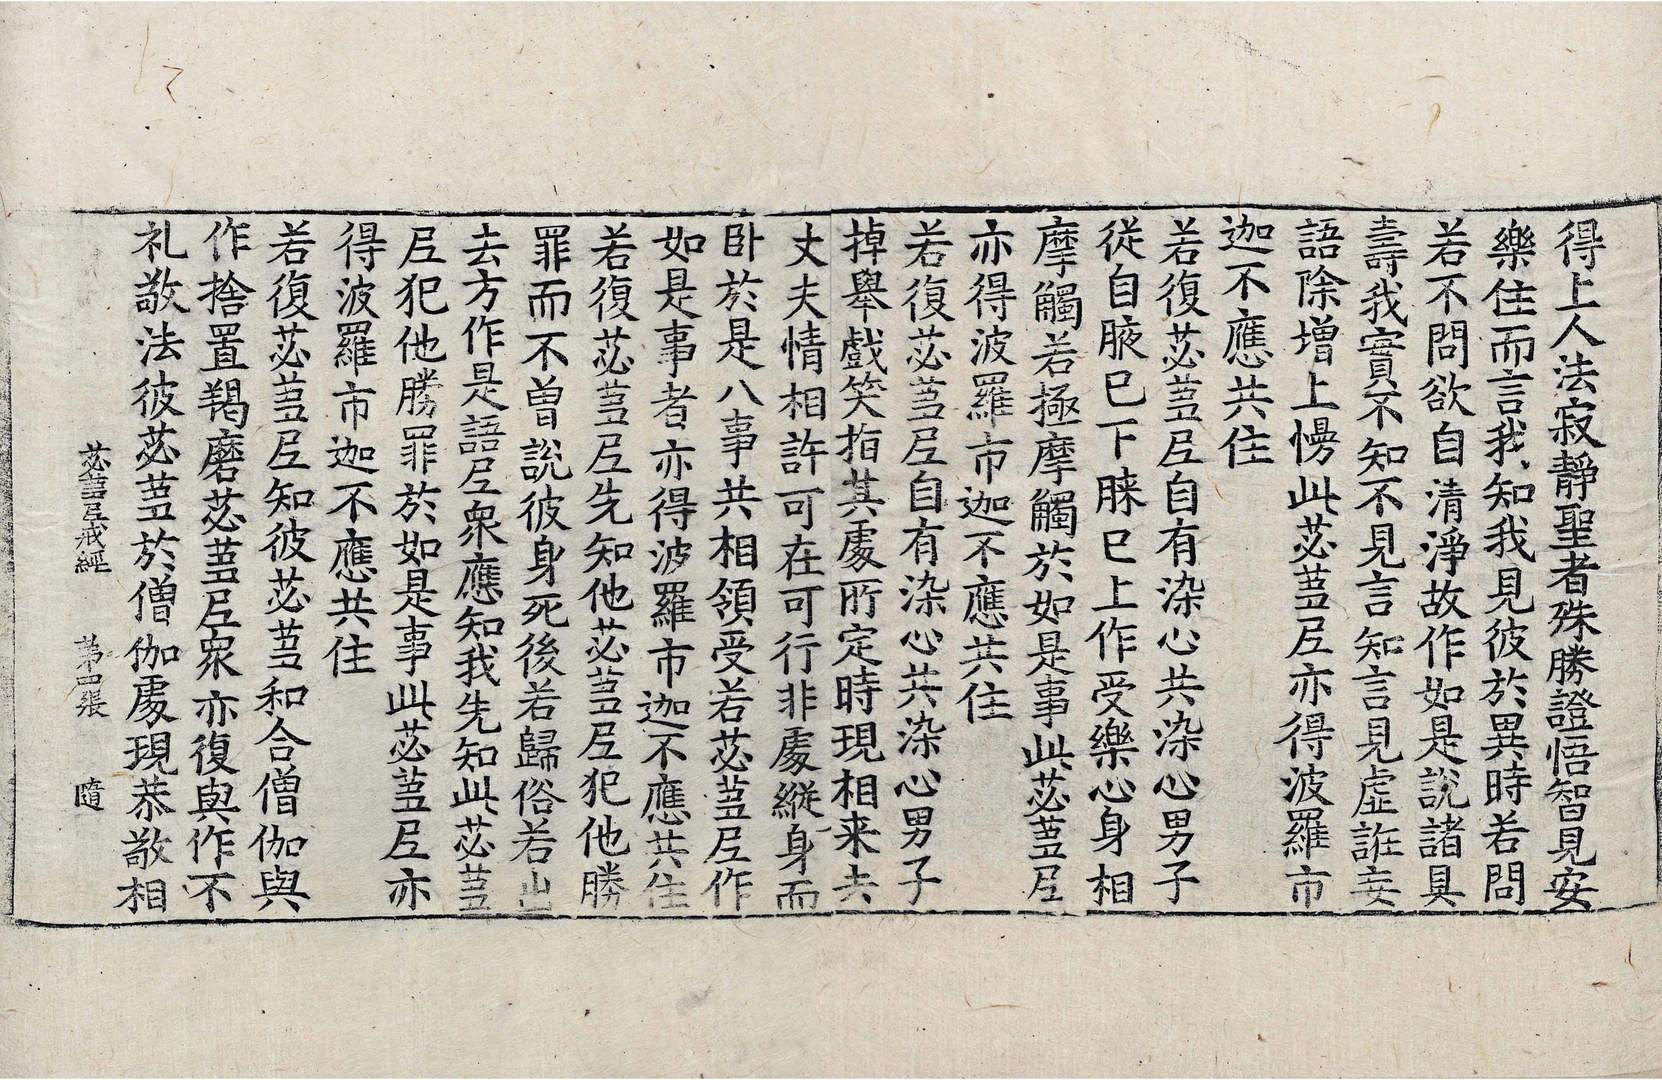 得上人法寂靜聖者殊勝證悟智見安
樂住而言我知我見彼於異時若問
若不問欲自清淨故作如是說諸具
壽我實不知不見言知言見虛誑妄
語除增上慢此苾蒭尼亦得波羅市
迦不應共住
若復苾蒭尼自有染心共染心男子
從自腋已下膝已上作受樂心身相
摩觸若極摩觸於如是事此苾蒭尼
亦得波羅市迦不應共住
若復苾蒭尼自有染心共染心男子
掉舉戲笑指其處所定時現相来去
丈夫情相許可在可行非處縱身而
卧於是八事共相領受若苾蒭尼作
如是事者亦得波羅市迦不應共住
若復苾蒭尼先知他苾蒭尼犯他勝
罪而不曾說彼身死後若歸俗若出
去方作是語尼衆應知我先知此苾蒭
尼犯他勝罪於如是事此苾蒭尼亦
得波羅市迦不應共住
若復苾蒭尼知彼苾蒭和合僧伽與
作捨置羯磨苾蒭尼衆亦復與作不
礼敬法彼苾蒭於僧伽處現恭敬相
苾蒭尼戒經 第四張 隨